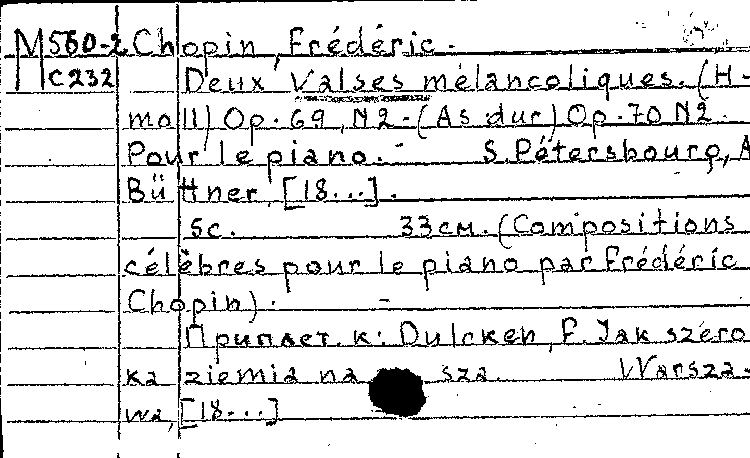 M 560-2 Chopin, Frédéric.
C232 Deux Valses mélancoliques. (H-
moll) Op. 69, N2. - (As dur) Op. 70 N2.
Pour le piano. - S. Pétersbourg, A
Büttner, [18...].
5c. 33см. (Compositions
célèbres pour le piano par Frédéric
Chopin). -
Приплет. к: Dulcken, F. Jak szero
ka ziemia na sza. Warsza-
wa, [18...]